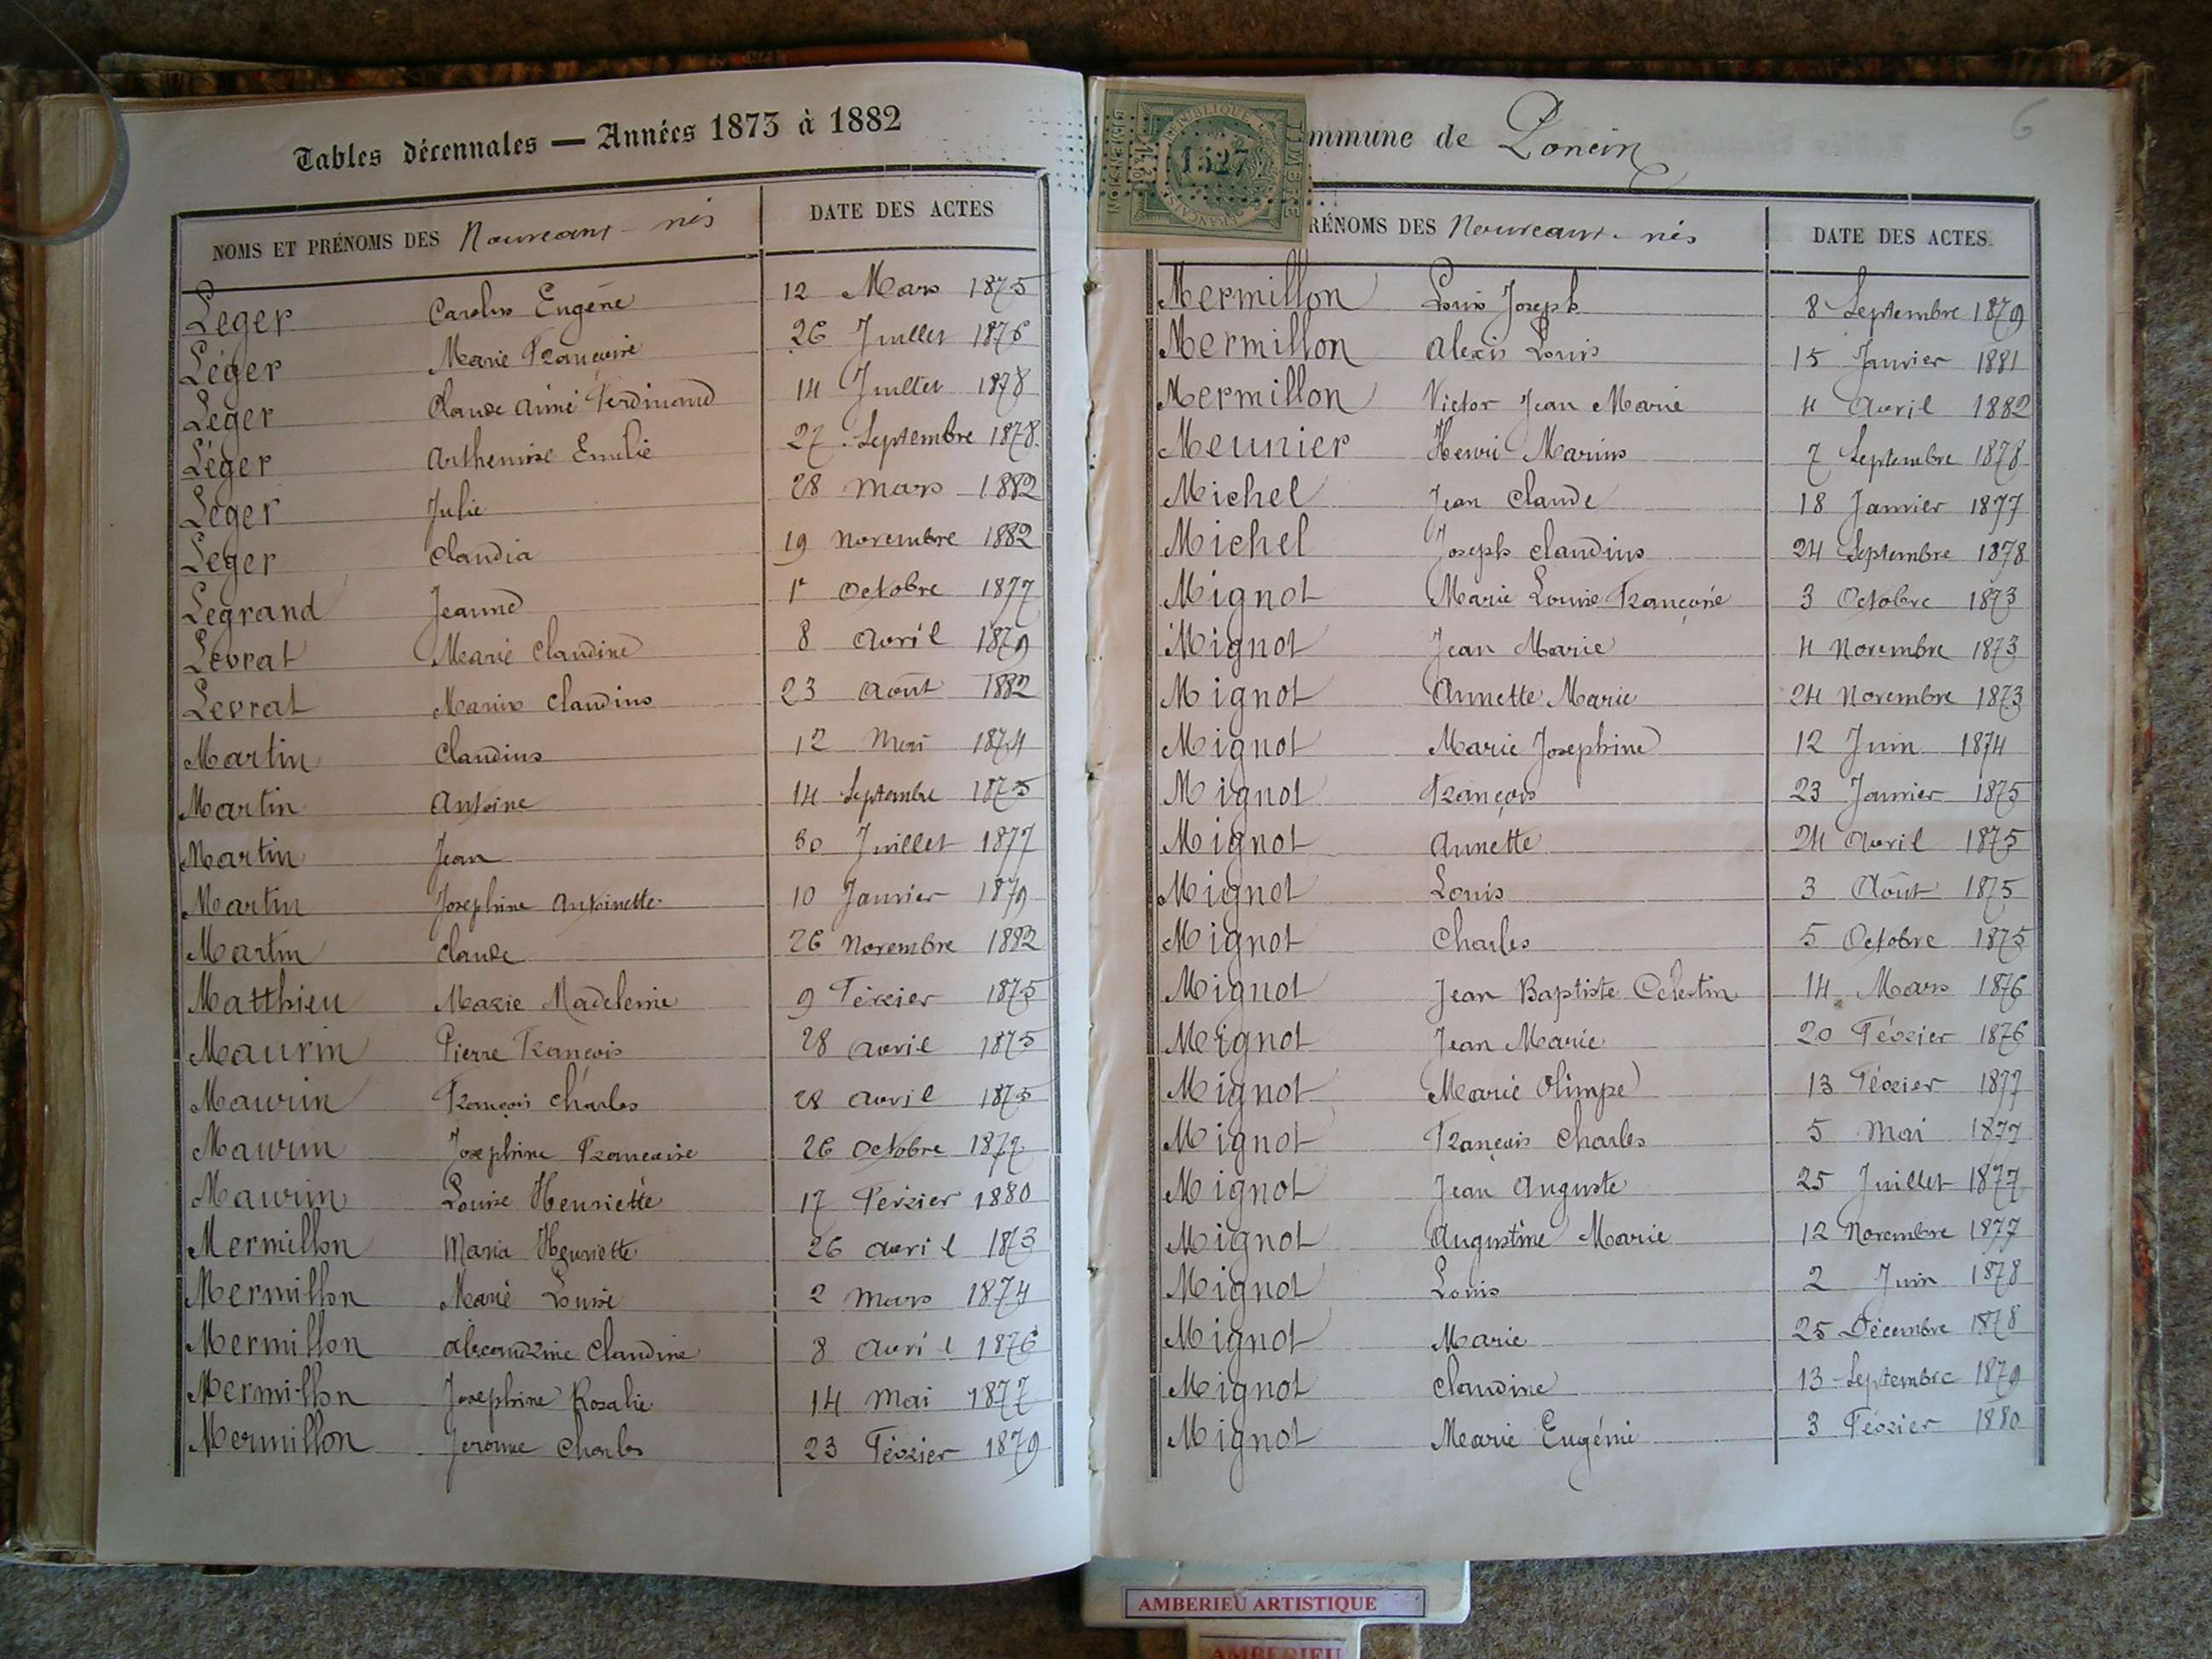 Tables décennales — Années 1873 à 1882
NOMS ET PRÉNOMS DES Nouveaux-nés DATE DES ACTES
Léger Carolus Eugène 12 Mars 1875
Léger Marie Françoise 26 Juillet 1876
Léger Claude Aimé Ferdinand 14 Juillet 1878
Léger Arthemise Emilie 27 Septembre 1878
Léger Julie 28 Mars 1882
Léger Claudia 19 Novembre 1882
Legrand Jeanne 1r Octobre 1877
Levrat Marie Claudine 8 Avril 1879
Levrat Marius Claudius 23 Août 1882
Martin Claudius 12 Mai 1874
Martin Antoine 14 Septembre 1875
Martin Jean 30 Juillet 1877
Martin Josephine Antoinette 10 Janvier 1879
Martin Claude 26 Novembre 1882
Matthieu Marie Madeleine 9 Février 1875
Maurin Pierre François 28 Avril 1875
Maurin François Charles 28 Avril 1875
Maurin Josephine Françoise 26 Octobre 1877
Maurin Louise Henriette 17 Février 1880
Mermillon Maria Henriette 26 Avril 1873
Mermillon Marie Louise 2 Mars 1874
Mermillon Alexandrine Claudine 8 Avril 1876
Mermillon Josephine Rosalie 14 Mai 1877
Mermillon Jerome Charles 23 Février 1879
mmune de Poncin
6
RÉPUBLIQUE FRANÇAISE
TIMBRE
DIMENSION
1527
RÉNOMS DES Nouveaux-nés DATE DES ACTES
Mermillon Louis Joseph 8 Septembre 1879
Mermillon Alexis Louis 15 Janvier 1881
Mermillon Victor Jean Marie 4 Avril 1882
Meunier Henri Marius 7 Septembre 1878
Michel Jean Claude 18 Janvier 1877
Michel Joseph Claudius 24 Septembre 1878
Mignot Marie Louise Françoise 3 Octobre 1873
Mignot Jean Marie 4 Novembre 1873
Mignot Annette Marie 24 Novembre 1873
Mignot Marie Josephine 12 Juin 1874
Mignot François 23 Janvier 1875
Mignot Annette 24 Avril 1875
Mignot Louis 3 Août 1875
Mignot Charles 5 Octobre 1875
Mignot Jean Baptiste Célestin 14 Mars 1876
Mignot Jean Marie 20 Février 1876
Mignot Marie Olimpe 13 Février 1877
Mignot François Charles 5 Mai 1877
Mignot Jean Auguste 25 Juillet 1877
Mignot Augustine Marie 12 Novembre 1877
Mignot Louis 2 Juin 1878
Mignot Marie 25 Décembre 1878
Mignot Claudine 13 Septembre 1879
Mignot Marie Eugénie 3 Février 1880
AMBERIEU ARTISTIQUE
AMBERIEU